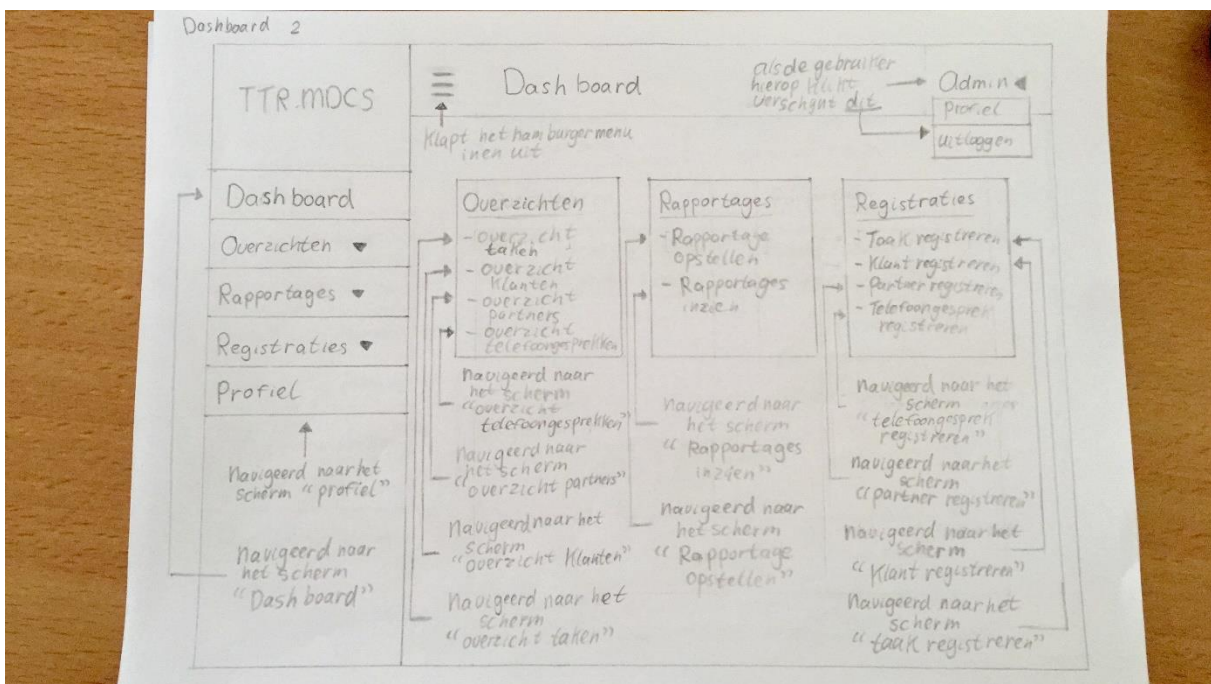 Dashboard 2
TTR.MDCS
Dashboard
als de gebruiker
hierop klikt
verschynt dit
Admin
Profiel
uitloggen
Klapt het hamburger menu
in en uit
Dashboard
Overzichten
Rapportages
Registraties
Profiel
navigeerd naar het
scherm "profiel"
navigeerd naar
het scherm
"Dashboard"
Overzichten
- overzicht
taken
- overzicht
klanten
- overzicht
partners
- overzicht
telefoongesprekken
navigeerd naar
het scherm
"overzicht
telefoongesprekken"
navigeerd naar
het scherm
"overzicht partners"
navigeerd naar het
scherm
"overzicht klanten"
navigeerd naar het
scherm
"overzicht taken"
Rapportages
- Rapportage
opstellen
- Rapportages
inzien
navigeerd naar
het scherm
"Rapportages
inzien"
navigeerd naar
het scherm
"Rapportage
opstellen"
Registraties
- Taak registreren
- Klant registreren
- Partner registreren
- Telefoongesprek
registreren
navigeerd naar het
scherm
"telefoongesprek
registreren"
navigeerd naar het
scherm
"partner registreren"
navigeerd naar het
scherm
"Klant registreren"
navigeerd naar het
scherm
"taak registreren"